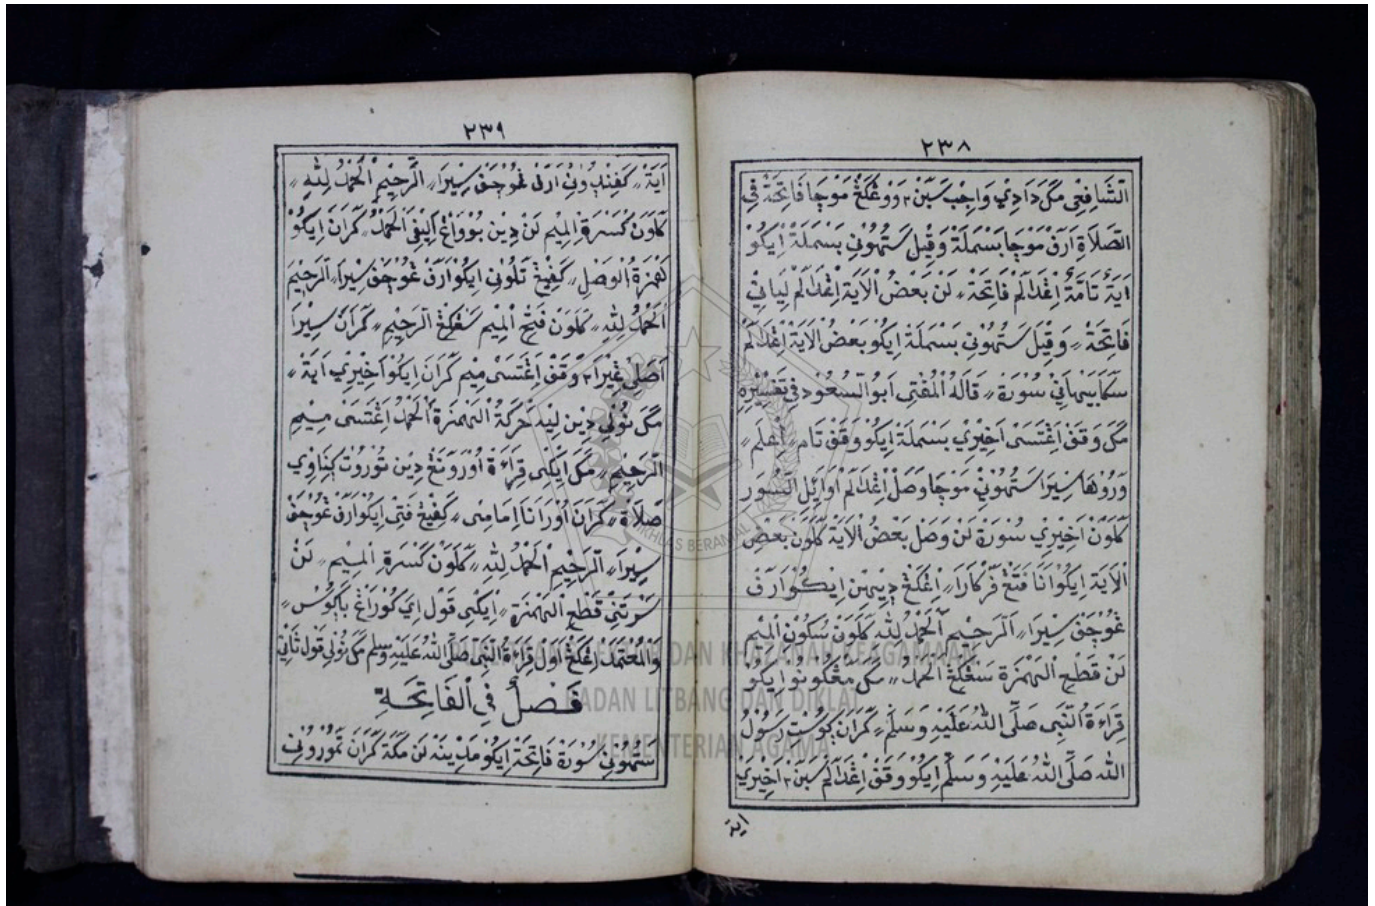 ٢٣٨
الشَّافِعِي مَكَ دَادِي وَاجِبْ سَبَنْ٢ وَوڠكَڠْ مَوْچَا فَاتِحَةْ فِي
الصَّلَاةِ ارَفْ مَوْچَا بَسْمَلَةْ وَقِيلَ سَتُهُوْنِي بَسْمَلَةْ اِيكُوْ
اَيَةْ تَامَّةْ اِڠْدَالَمْ فَاتِحَةْ لَنْ بَعْضُ الْاَيَةْ اِڠْدَالَمْ لِيَانَيْ
فَاتِحَةْ وَقِيلَ سَتُهُوْنِي بَسْمَلَةْ اِيكُوْ بَعْضُ الْاَيَةْ اِڠْدَالَمْ
سَكَابَيْهَانَيْ سُوْرَةْ قَالَهُ الْمُفْتِى اَبُو السُّعُوْد فِي تَفْسِيْرِهِ
مَكَ وَقَفْ اِڠْتَسَى اَخِيْرَيْ بَسْمَلَةْ اِيكُوْ وَقَفْ تَام اَعْلَم
وَرُوْهَا سِيْرَا سَتُهُوْنَيْ مَوْچَا وَصَلْ اِڠْدَالَمْ اَوَايِلِ السُّوَر
كَلَوَنْ اَخِيْرَيْ سُوْرَةْ لَنْ وَصَلْ بَعْضُ الْاَيَةْ كَلَوَنْ بَعْضُ
الْاَيَةْ اِيكُوْ اَنَا فَتَڠْ فَرْكَارَا اِڠكَڠْ دِيْهِيْن اِيكُوْ ارَفْ
ڠُوْچَفْ سِيْرَا الرَّحِيْمِ اَلْحَمْدُ لِلّٰهِ كَلَوَنْ سُكُوْنِ الْمِيْم
لَنْ قَطَعِ الْهَمْزَةْ سَڠْكَڠْ اَلْحَمْدُ مَكَ مَڠْكَوْنَوْ اِيكُوْ
قِرَاءَةُ النَّبِى صَلَّى اللّٰهُ عَلَيْهِ وَسَلَّمْ كَرَانَ ڮُوْسْتِ رَسُوْلُ
اللّٰه صَلَّى اللّٰهُ عَلَيْهِ وَسَلَّمْ اِيكُوْ وَقَفْ اِڠْدَالَمْ سَبَنْ٢ اَخِيْرَيْ
اَيَة
٢٣٩
اَيَةْ كَفِنْدَوْنِي ارَفْ ڠُوْچَفْ سِيْرَا الرَّحِيْمِ اَلْحَمْدُ لِلّٰهِ
كَلَوَنْ كَسْرَةِ الْمِيْمِ لَنْ دِيْن بُوْوَاڠْ اَلِيْفَى اَلْحَمْدُ كَرَانَ اِيكُوْ
هَمْزَةُ الْوَصْلِ كَفِيْڠ تَلُوْنِي اِيكُوْ ارَفْ ڠُوْچَفْ سِيْرَا الرَّحِيْمَ
اَلْحَمْدُ لِلّٰهِ كَلَوَنْ فَتَحِ الْمِيْم سَڠْكَڠْ الرَّحِيْمِ كَرَانَ سِيْرَا
اَصَلَى وَقَفْ اِڠْتَسَى مِيْم كَرَانَ اِيكُوْ اَخِيْرَيْ اَيَةْ
مَكَ نُوْلِي دِيْن لِيْه حَرَكَةْ الْهَمْزَةْ اَلْحَمْدُ اِڠْتَسَى مِيْمَى
الرَّحِيْمِ مَكَ اِيْكِى قِرَاءَةْ اَوْرَ وَنَڠْ دِيْن تُوْرُوْتْ
صَلَاةْ كَرَانَ اَوْرَ اَنَا اِمَامَى كَفِيْڠ فَتَى اِيكُوْ ارَفْ ڠُوْچَفْ
سِيْرَا الرَّحِيْمِ اَلْحَمْدُ لِلّٰهِ كَلَوَنْ كَسْرَةِ الْمِيْمِ لَنْ
سَرْتَنَى قَطَعِ الْهَمْزَةْ اِيْكِى قَوْل اِيْ كُوْرَاڠْ بَاڮُوْس
وَالْمُعْتَمَدْ اِڠكَڠْ اَوَلْ قِرَاءَةُ النَّبِى صَلَّى اللّٰهُ عَلَيْهِ وَسَلَّمْ مَكَ نُوْلِي قَوْل ثَانِي
فَصْلٌ فِي الْفَاتِحَةِ
سَتُهُوْنِي سُوْرَةْ فَاتِحَةْ اِيكُوْ مَدِيْنَه لَنْ مَكَّةْ كَرَانَ تَمُوْرُوْنَى
PUSLITBANG LEKTUR DAN KHAZANAH KEAGAMAAN
BADAN LITBANG DAN DIKLAT
KEMENTERIAN AGAMA
IKHLAS BERAMAL